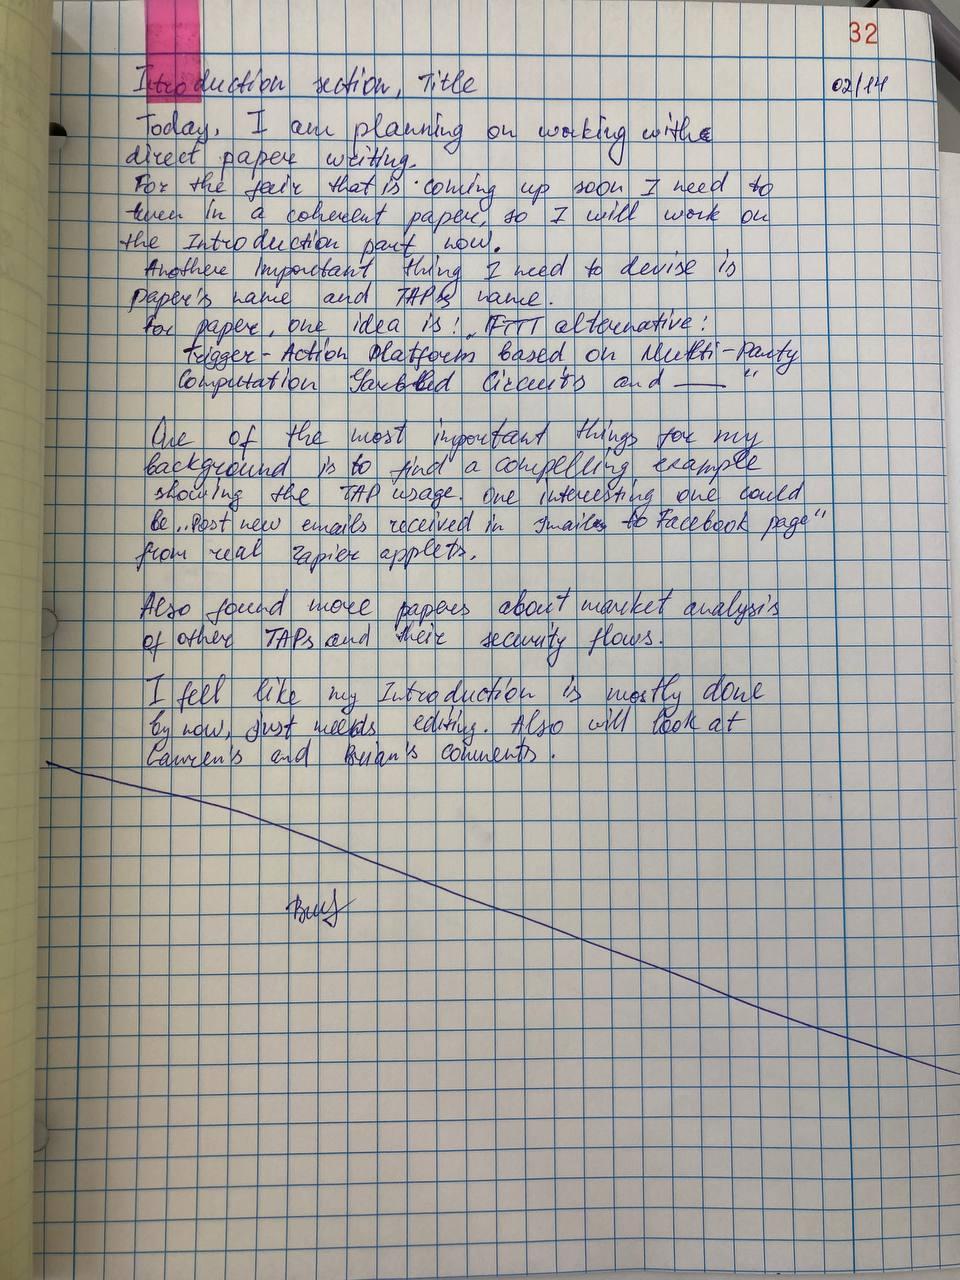 32
Introduction section, Title 02/14
Today, I am planning on working with
direct paper writing.
For the fair that is coming up soon I need to
turn in a coherent paper, so I will work on
the Introduction part now.
Another important thing I need to devise is
paper's name and TAP's name.
For paper, one idea is: „IFTTT alternative:
Trigger-Action Platform based on Multi-Party
Computation Garbled Circuits and —— "
One of the most important things for my
background is to find a compelling example
showing the TAP usage. One interesting one could
be „Post new emails received in Gmail to Facebook page"
from real Zapier applets.
Also found more papers about market analysis
of other TAPs and their security flows.
I feel like my Introduction is mostly done
by now, just needs editing. Also will look at
Lauren's and Brian's comments.